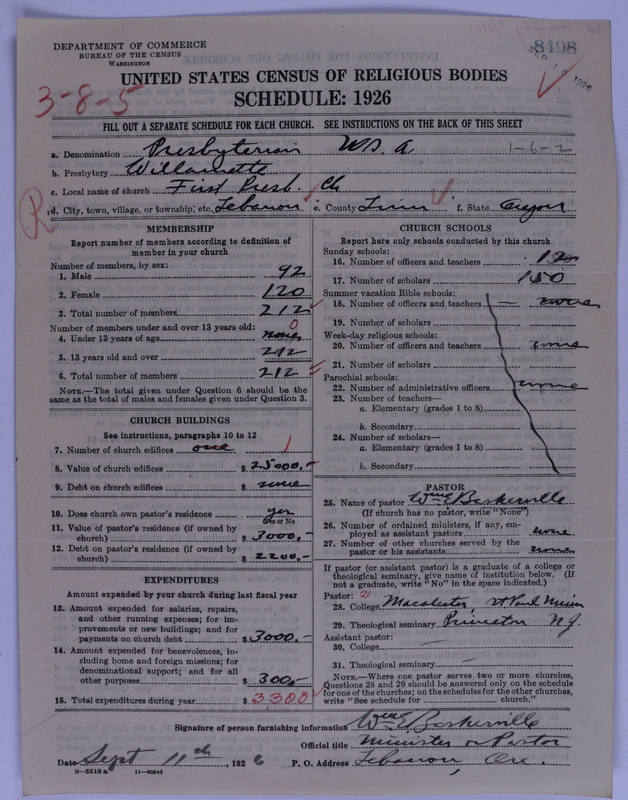 DEPARTMENT OF COMMERCE
BUREAU OF THE CENSUS
WASHINGTON
8498
SEP 1926
UNITED STATES CENSUS OF RELIGIOUS BODIES
SCHEDULE: 1926
3-8-5
FILL OUT A SEPARATE SCHEDULE FOR EACH CHURCH. SEE INSTRUCTIONS ON THE BACK OF THIS SHEET
a. Denomination Presbyterian U.S.A. 1-6-2
b. Presbytery Willamette
c. Local name of church First Presb. Ch
R
d. City, town, village, or township, etc. Lebanon e. County Linn f. State Oregon
MEMBERSHIP
Report number of members according to definition of
member in your church
Number of members, by sex:
1. Male 92
2. Female 120
3. Total number of members 212
Number of members under and over 13 years old:
4. Under 13 years of age none 0
5. 13 years old and over 212
6. Total number of members 212
NOTE.—The total given under Question 6 should be the
same as the total of males and females given under Question 3.
CHURCH BUILDINGS
See instructions, paragraphs 10 to 12
7. Number of church edifices one 1
8. Value of church edifices $ 25000.-
9. Debt on church edifices $ none
10. Does church own pastor's residence yes
Yes or No
11. Value of pastor's residence (if owned by
church) $ 3000.-
12. Debt on pastor's residence (if owned by
church) $ 2200.-
EXPENDITURES
Amount expended by your church during last fiscal year
13. Amount expended for salaries, repairs,
and other running expenses; for im-
provements or new buildings; and for
payments on church debt $ 3000.-
14. Amount expended for benevolences, in-
cluding home and foreign missions; for
denominational support; and for all
other purposes $ 300.-
15. Total expenditures during year $ 3300
CHURCH SCHOOLS
Report here only schools conducted by this church
Sunday schools:
16. Number of officers and teachers 12
17. Number of scholars 150
Summer vacation Bible schools:
18. Number of officers and teachers — none
19. Number of scholars
Week-day religious schools:
20. Number of officers and teachers none
21. Number of scholars
Parochial schools:
22. Number of administrative officers none
23. Number of teachers—
a. Elementary (grades 1 to 8)
b. Secondary
24. Number of scholars—
a. Elementary (grades 1 to 8)
b. Secondary
PASTOR
25. Name of pastor Wm E Baskerville
(If church has no pastor, write "None")
26. Number of ordained ministers, if any, em-
ployed as assistant pastors none
27. Number of other churches served by the
pastor or his assistants none
If pastor (or assistant pastor) is a graduate of a college or
theological seminary, give name of institution below. (If
not a graduate, write "No" in the space indicated.)
Pastor: 2
28. College Macalester, St Paul Minn
29. Theological seminary Princeton N.J.
Assistant pastor:
30. College —
31. Theological seminary —
NOTE.—Where one pastor serves two or more churches,
Questions 28 and 29 should be answered only on the schedule
for one of the churches; on the schedules for the other churches,
write "See schedule for church."
Signature of person furnishing information Wm E Baskerville
Official title Minister or Pastor
Date Sept 11th, 1926 P. O. Address Lebanon, Ore.
8-5518 a